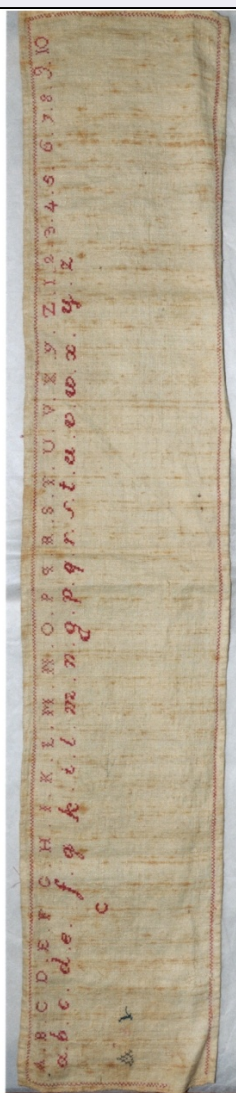 A. B. C. D. E. F. G. H. I. K. L. M. N. O. P. Q. R. S. T. U. V. X. Y. Z 1. 2. 3. 4. 5. 6. 7. 8. 9. 10
a. b. c. d. e. f. g. k. i. l. m. n. g. p. q. r. s. t. u. v. w. x. y. z
C